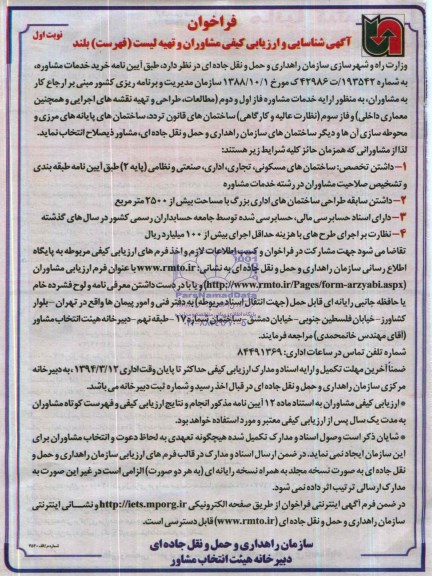 فراخوان
نوبت اول
آگهی شناسایی و ارزیابی کیفی مشاوران و تهیه لیست (فهرست) بلند
وزارت راه و شهرسازی سازمان راهداری و حمل و نقل جاده ای در نظر دارد، طبق آیین نامه خرید خدمات مشاوره،
به شماره ۱۹۳۵۴۲/ت ۴۲۹۸۶ ک مورخ ۱۳۸۸/۱۰/۱ سازمان مدیریت و برنامه ریزی کشور مبنی بر ارجاع کار
به مشاوران، به منظور ارایه خدمات مشاوره فاز اول و دوم (مطالعات، طراحی و تهیه نقشه های اجرایی و همچنین
معماری داخلی) و فاز سوم (نظارت عالیه و کارگاهی) ساختمان های قانون تردد، ساختمان های پایانه های مرزی و
محوطه سازی آن ها و دیگر ساختمان های سازمان راهداری و حمل و نقل جاده ای، مشاور ذیصلاح انتخاب نماید.
لذا از مشاورانی که همزمان حائز کلیه شرایط زیر هستند:
۱- داشتن تخصص: ساختمان های مسکونی، تجاری، اداری، صنعتی و نظامی (پایه ۲) طبق آیین نامه طبقه بندی
و تشخیص صلاحیت مشاوران در رشته خدمات مشاوره
۲- داشتن سابقه طراحی ساختمان های اداری بزرگ با مساحت بیش از ۲۵۰۰ متر مربع
۳- دارای اسناد حسابرسی مالی، حسابرسی شده توسط جامعه حسابداران رسمی کشور در سال های گذشته
۴- نظارت بر اجرای طرح های با هزینه حداقل اجرای بیش از ۱۰۰ میلیارد ریال
تقاضا می شود جهت مشارکت در فراخوان و کسب اطلاعات لازم و اخذ فرم های ارزیابی کیفی مربوطه به پایگاه
اطلاع رسانی سازمان راهداری و حمل و نقل جاده ای به نشانی: www.rmto.ir با عنوان فرم ارزیابی مشاوران
(http://www.rmto.ir/Pages/form-arzyabi.aspx) و یا با در دست داشتن معرفی نامه و لوح فشرده خام
یا حافظه جانبی رایانه ای قابل حمل (جهت انتقال اسناد مربوطه) به دفتر فنی و امور پیمان ها واقع در تهران - بلوار
کشاورز - خیابان فلسطین جنوبی - خیابان دمشق - ساختمان شماره ۱۷ - طبقه نهم - دبیرخانه هیئت انتخاب مشاور
(آقای مهندس خانمحمدی) مراجعه فرمایند.
شماره تلفن تماس در ساعات اداری: ۸۴۴۹۱۳۶۹
ضمناً آخرین مهلت تکمیل و ارایه اسناد و مدارک ارزیابی کیفی حداکثر تا پایان وقت اداری ۱۳۹۴/۳/۱۲، به دبیرخانه
مرکزی سازمان راهداری و حمل و نقل جاده ای در قبال اخذ رسید و شماره ثبت دبیرخانه می باشد.
* ارزیابی کیفی مشاوران به استناد ماده ۱۲ آیین نامه مذکور انجام و نتایج ارزیابی کیفی و فهرست کوتاه مشاوران
به مدت یک سال پس از ارزیابی کیفی معتبر و مورد استفاده خواهد بود.
* شایان ذکر است وصول اسناد و مدارک تکمیل شده هیچگونه تعهدی به لحاظ دعوت و انتخاب مشاوران برای
این سازمان ایجاد نمی نماید. در ضمن ارسال اسناد و مدارک در قالب فرم های ارزیابی سازمان راهداری و حمل و
نقل جاده ای به صورت نسخه مجلد به همراه نسخه رایانه ای (به هر دو صورت) الزامی است در غیر این صورت به
مدارک ارسالی ترتیب اثر داده نمی شود.
در ضمن فرم آگهی اینترنتی فراخوان از طریق صفحه الکترونیکی http://iets.mporg.ir و نشانی اینترنتی
سازمان راهداری و حمل و نقل جاده ای (www.rmto.ir) قابل دسترسی است.
سازمان راهداری و حمل و نقل جاده ای
دبیرخانه هیئت انتخاب مشاور